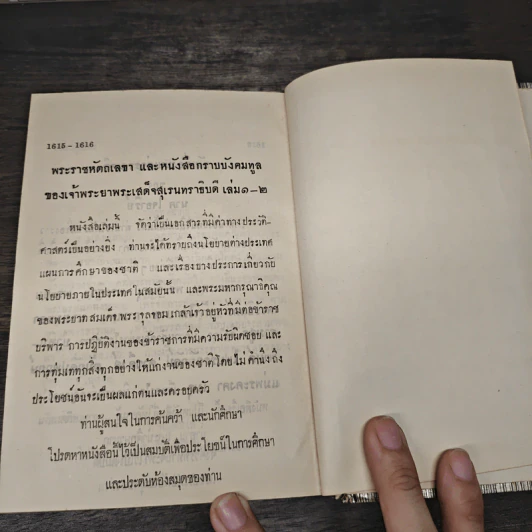 1615 - 1616
พระราชหัตถเลขา และหนังสือกราบบังคมทูล
ของเจ้าพระยาพระเสด็จสุเรนทราธิบดี เล่ม ๑-๒
หนังสือเล่มนี้ จัดว่าเป็นเอกสารที่มีค่าทางประวัติ-
ศาสตร์เป็นอย่างยิ่ง ท่านจะได้ทราบถึงนโยบายต่างประเทศ
แผนการศึกษาของชาติ ๆ และเรื่องบางประการเกี่ยวกับ
นโยบายภายในประเทศในสมัยนั้น และพระมหากรุณาธิคุณ
ของพระบาทสมเด็จพระจุลจอมเกล้าเจ้าอยู่หัวที่มีต่อข้าราช
บริพาร การปฏิบัติงานของข้าราชการที่มีความรับผิดชอบ และ
การทุ่มเททุกสิ่งทุกอย่างให้แก่งานของชาติโดยไม่คำนึงถึง
ประโยชน์อันจะเป็นผลแก่ตนและครอบครัว
ท่านผู้สนใจในการค้นคว้า และนักศึกษา
โปรดหาหนังสือนี้ไว้เป็นสมบัติเพื่อประโยชน์ในการศึกษา
และประดับห้องสมุดของท่าน